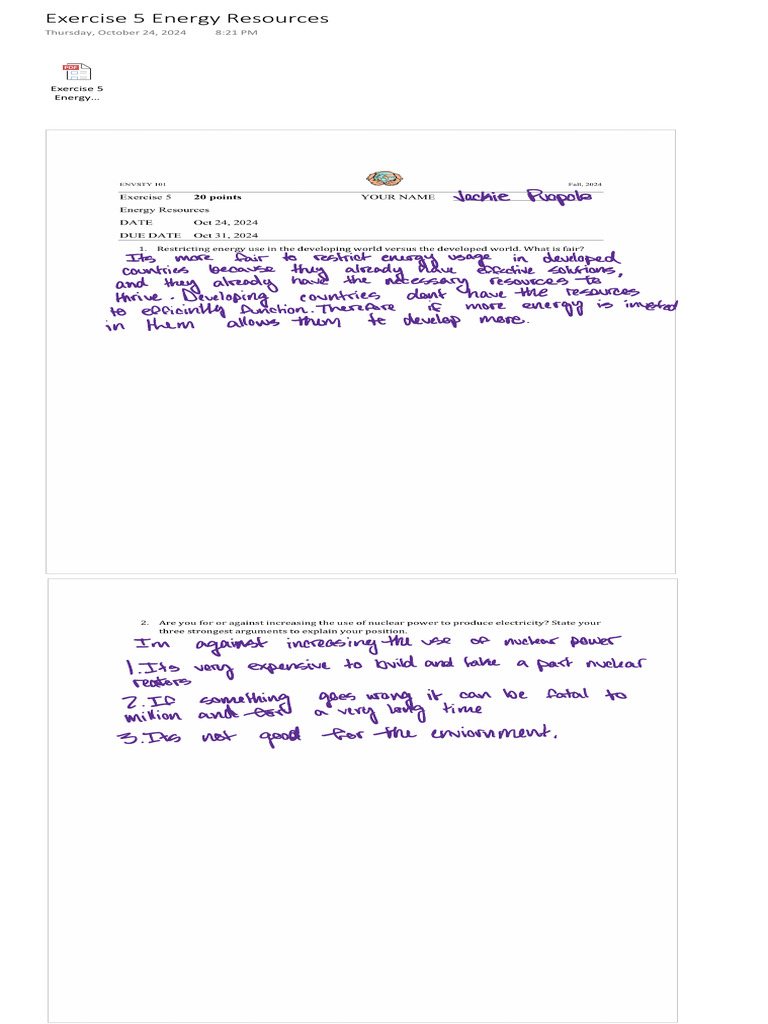 Exercise 5 Energy Resources
Thursday, October 24, 2024 8:21 PM
PDF
Exercise 5
Energy...
ENVSTY 101 Fall, 2024
Exercise 5 20 points YOUR NAME Jackie
Energy Resources
DATE Oct 24, 2024
DUE DATE Oct 31, 2024
1. Restricting energy use in the developing world versus the developed world. What is fair?
Its more fair to restrict energy usage in developed
countries because they already have effective solutions,
and they already have the necessary resources to
thrive. Developing countries dont have the resources
to efficintly function. Therefore if more energy is invested
in them allows them to develop more.
2. Are you for or against increasing the use of nuclear power to produce electricity? State your
three strongest arguments to explain your position.
Im against increasing the use of nuclear power
1. Its very expensive to build and take a part nuclear
reators
2. If something goes wrong it can be fatal to
million and a very long time
3. Its not good for the enviornment.